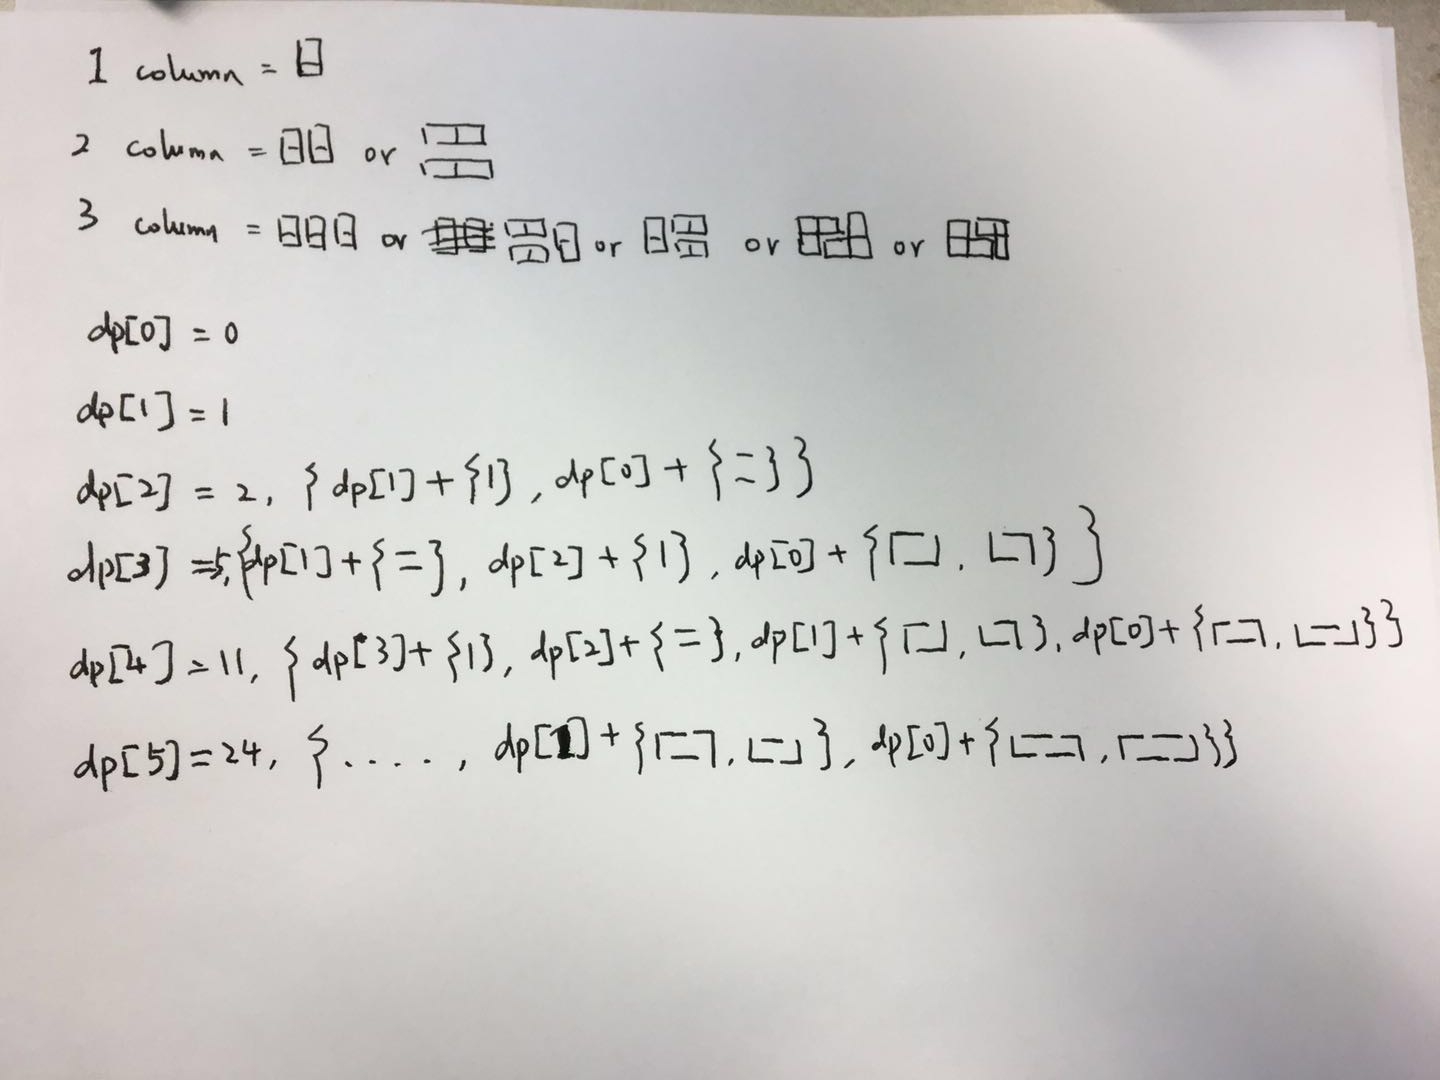 1 column =
2 column = or
3 column = or or or or
dp[0] = 0
dp[1] = 1
dp[2] = 2, { dp[1] + {1}, dp[0] + {=}}
dp[3] = 5, {dp[1] + {=}, dp[2] + {1}, dp[0] + { , }}
dp[4] = 11, { dp[3] + {1}, dp[2] + {=}, dp[1] + { , }, dp[0] + { , }}
dp[5] = 24, { ...., dp[1] + { , }, dp[0] + { , }}